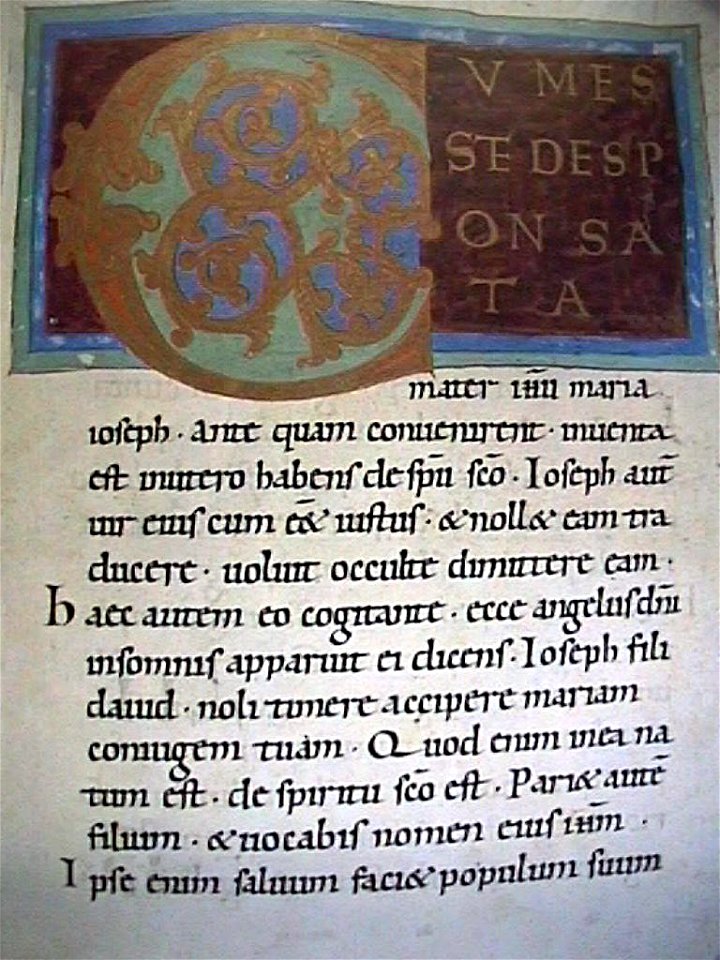 CUMES
SEDESP
ONSA
TA
mater ihu maria
ioseph · ante quam conuenirent · inuenta
est inutero habens de spu sco · Ioseph aut
uir eius cum eet iustus · & noll& eam tra
ducere · uoluit occulte dimittere eam ·
haec autem eo cogitante · ecce angelus dni
insomnis apparuit ei dicens · Ioseph fili
dauid · noli timere accipere mariam
coniugem tuam · Quod enim inea na
tum est · de spiritu sco est · Pari& aute
filium · & uocabis nomen eius ihm ·
Ipse enim saluum faci& populum suum